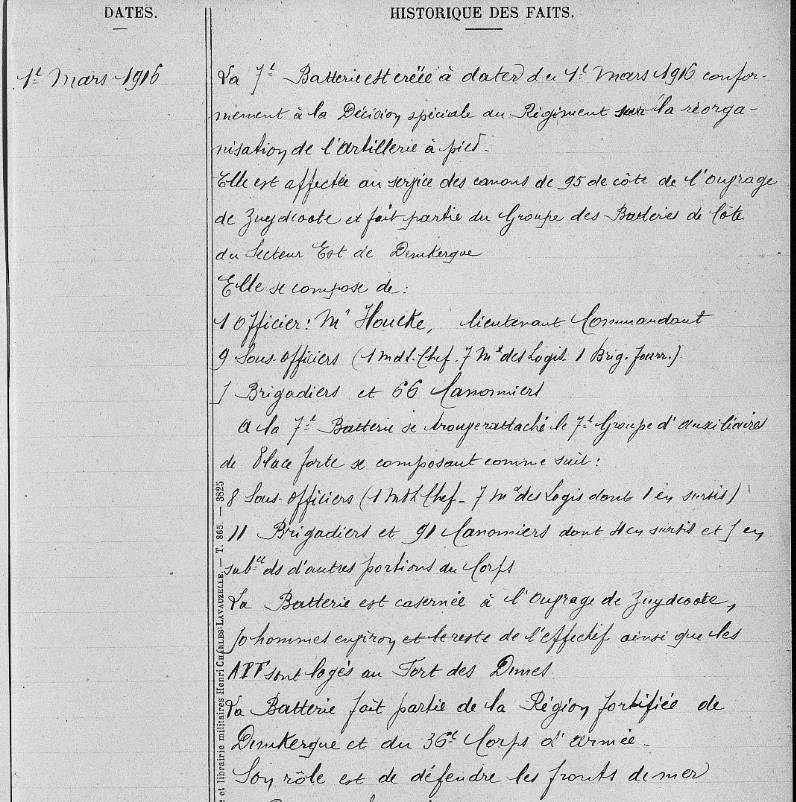 DATES.
HISTORIQUE DES FAITS.
1er Mars 1916
La 7e Batterie est créée à dater du 1er Mars 1916 confor-
mément à la Décision spéciale du Régiment sur la réorga-
nisation de l'Artillerie à pied.
Elle est affectée au service des canons de 95 de côte de l'Ouvrage
de Zuydcoote et fait partie du Groupe des Batteries de Côte
du Secteur Est de Dunkerque
Elle se compose de:
1 Officier: Mr Houcke, lieutenant Commandant
9 Sous-Officiers (1 Mdl. Chef - 7 Mis des Logis - 1 Brig. Fourr.)
Brigadiers et 66 Canonniers
A la 7e Batterie se trouve rattaché le 7e Groupe d'auxiliaires
de Place forte se composant comme suit:
8 Sous-Officiers (1 Mdl Chef - 7 Mis des Logis dont 1 en sursis)
11 Brigadiers et 91 Canonniers dont 4 en sursis et en
subce ds d'autres portions du Corps
La Batterie est casernée à l'Ouvrage de Zuydcoote,
hommes environ et le reste de l'effectif ainsi que les
sont logés au Fort des Dunes
La Batterie fait partie de la Région fortifiée de
Dunkerque et du 36e Corps d'Armée.
Son rôle est de défendre les fronts de mer
e et librairie militaires Henri CHARLES-LAVAUZELLE. — T. 865. — 3825